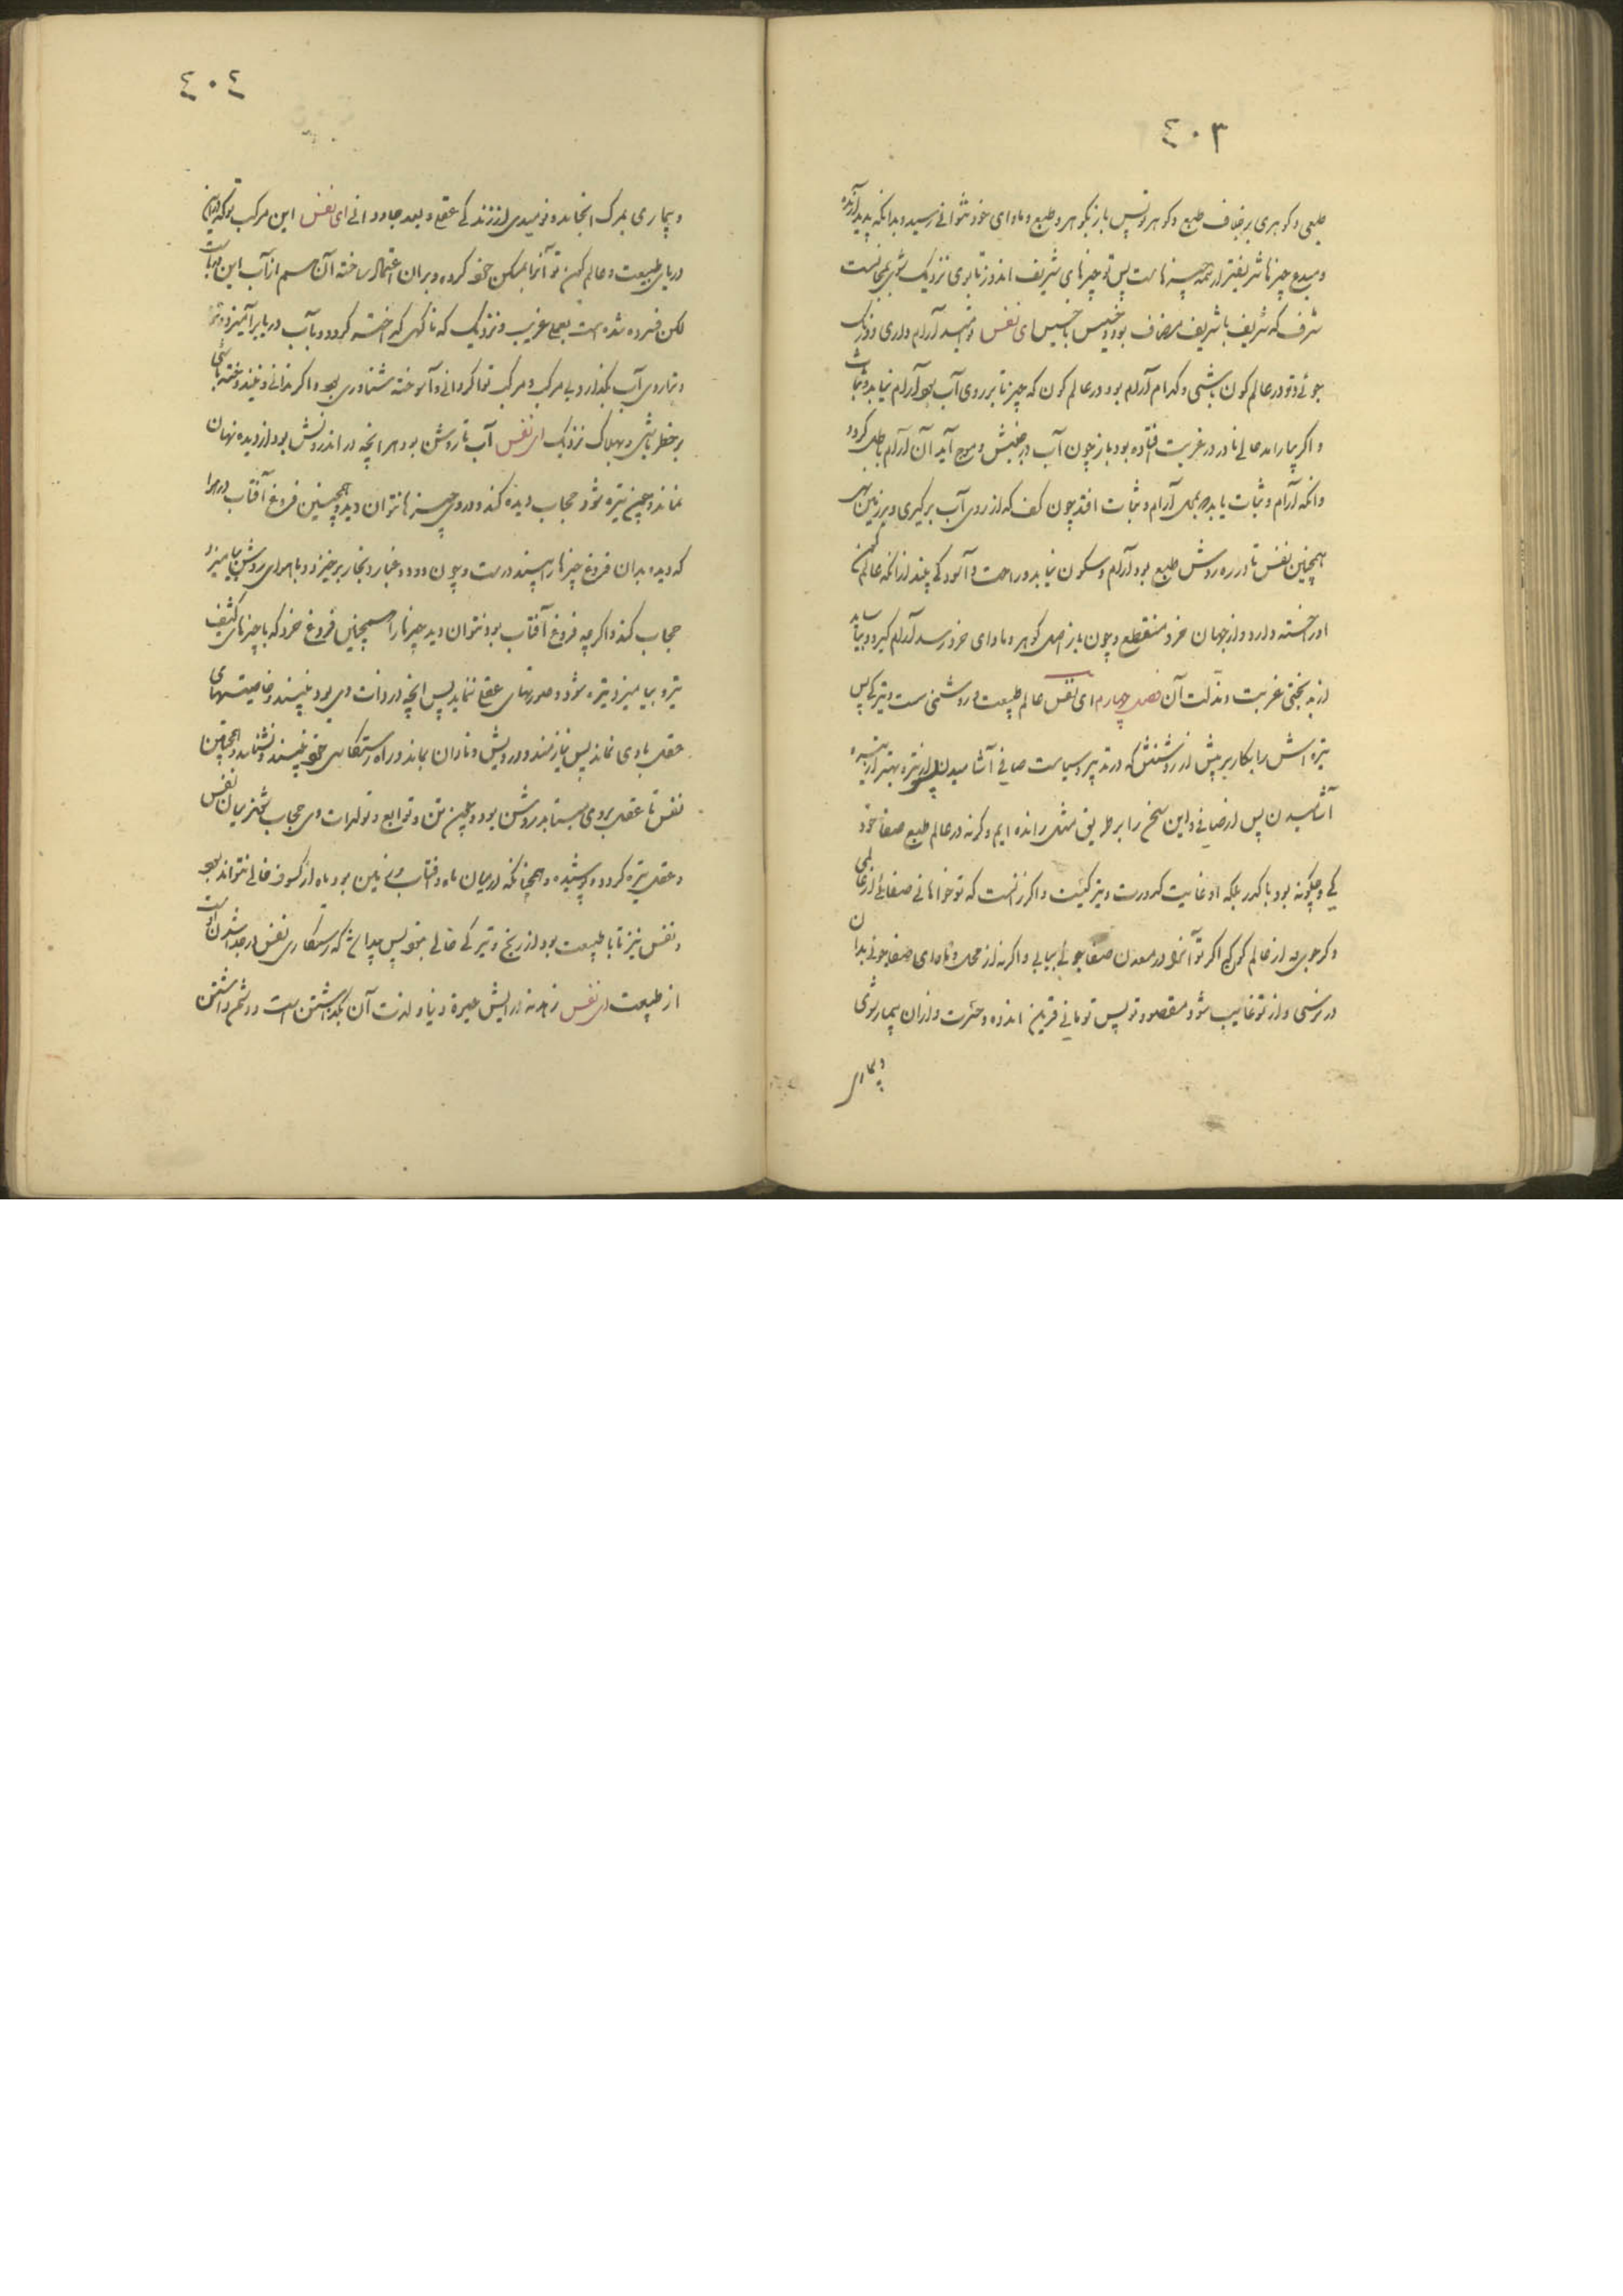 ٤٠٣
طبعی و کوهری بر خلاف طبع و کوهر تو پس باز بکوهر و طبع و ماوای خود نتوانی رسید و بدانکه پدید آرنده
و مبدع چیزها شریفتر از همه چیزهاست پس تو چیزهای شریف اندوز تا بوی نزدیک شوی بمجانست
شرف که شریف با شریف مضاف بود و خسیس با خسیس ای نفس امید آرام داری و درنگ
جوئی و تو در عالم کون باشی و کدام آرام بود در عالم کون که چیز تا بر روی آب بود آرام نیابد و ثبات
و اکر بیارامد حالی نادر در غربت افتاده بود باز چون آب در جنبش و موج آید آن آرام باطل کردد
وانکه آرام و ثبات یابد بمحل آرام و ثبات افتد چون کف که از روی آب برکیری و بر زمین نهی
همچنین نفس تا در ره روش طبع بود آرام و سکون نیابد و راحت و آسودکی نبیند از انکه عالم کون
او را خسته دارد و از جهان خرد منقطع و چون باز اصل کوهر و ماوای خود رسد آرام کیرد و بیاساید
از بدبختی غربت و مذلت آن فصل چهارم ای نفس عالم طبیعت روشنی است و تیرکی پس
تیره اش را بکار بر پیش از روشنش که در تدبیر و سیاست صافی آشامیدن پس از تیره بهتر از تیره
آشامیدن پس از صافی و این سخن را بر طریق مثل رانده ایم و کرنه در عالم طبع صفا خود
کی و چکونه بود با کدر بلکه او غایت کدورت و تیرکیست و اکر زانست که تو خواهانی صفا از عالمی
و کر جوی نه از عالم کون که اکر تو آنرا در معدن صفا جوئی بیابی و اکر نه از محل و ماوای صفا جوئی بدان
در نرسی و از تو غایب شود مقصود تو پس تو مانی قرین اندوه و حسرت و از ان بیمار شوی
و بیماری
٤٠٤
و بیماری بمرک انجامد و نومیدی از زندکی عقلی و بعد جاودانی ای نفس این مرکب تو که در این
دریای طبیعت و عالم کون تو آنرا مسکن خود کرده و بر ان اعتماد ساخته آن هم از آب این دریاست
لکن فسرده شده است بعملی غریب و نزدیک که ناکهان کداخته کردد و با آب دریا برآمیزد و تو
و تنها روی آب بکذارد بی مرکب و مرکب تواکردانی و آموخته شناوری بود و اکر ندانی و نیندوخته باشی
بر خطر باشی و بهلاک نزدیک ای نفس آب تا روشن بود هر انچه در اندرونش بود از دیده نهان
نماند و چون تیره شود حجاب دیده کند و در وی چیزها نتوان دید و همچنین فروغ آفتاب در هوا
که دیده بدان فروغ چیزها را بیند درست و چون دود و غبار و بخار برخیزد و با هوای روشن بیامیزد
حجاب کند و اکر چه فروغ آفتاب بود نتوان دید چیزها را همچنین فروغ خرد که با چیزهای کثیف
تیره بیامیزد تیره شود و صورتهای عقلی ننماید پس انچه در ذات وی بود نبیند و خاصیتهای
عقلی با وی نماند پس نیازمند و درویش و نادان بماند و راه رستکاری خود نبیند و نشناسد و همچنین
نفس تا عقل بر وی بتابد روشن بود و چون تن و توابع و تولدات وی حجاب شود میان نفس
و عقل تیره کردد و پوشیده و همچنانکه در میان ماه و آفتاب زمین بود ماه از کسوف خالی نتواند بود
و نفس نیز تا با طبیعت بود از رنج و تیرکی خالی نبود پس پیدا شد که رستکاری نفس در جدا شدن اوست
از طبیعت ای نفس نه در آرایش حیوة دنیا و لذت آن بکذاشتن است و دشمن داشتن